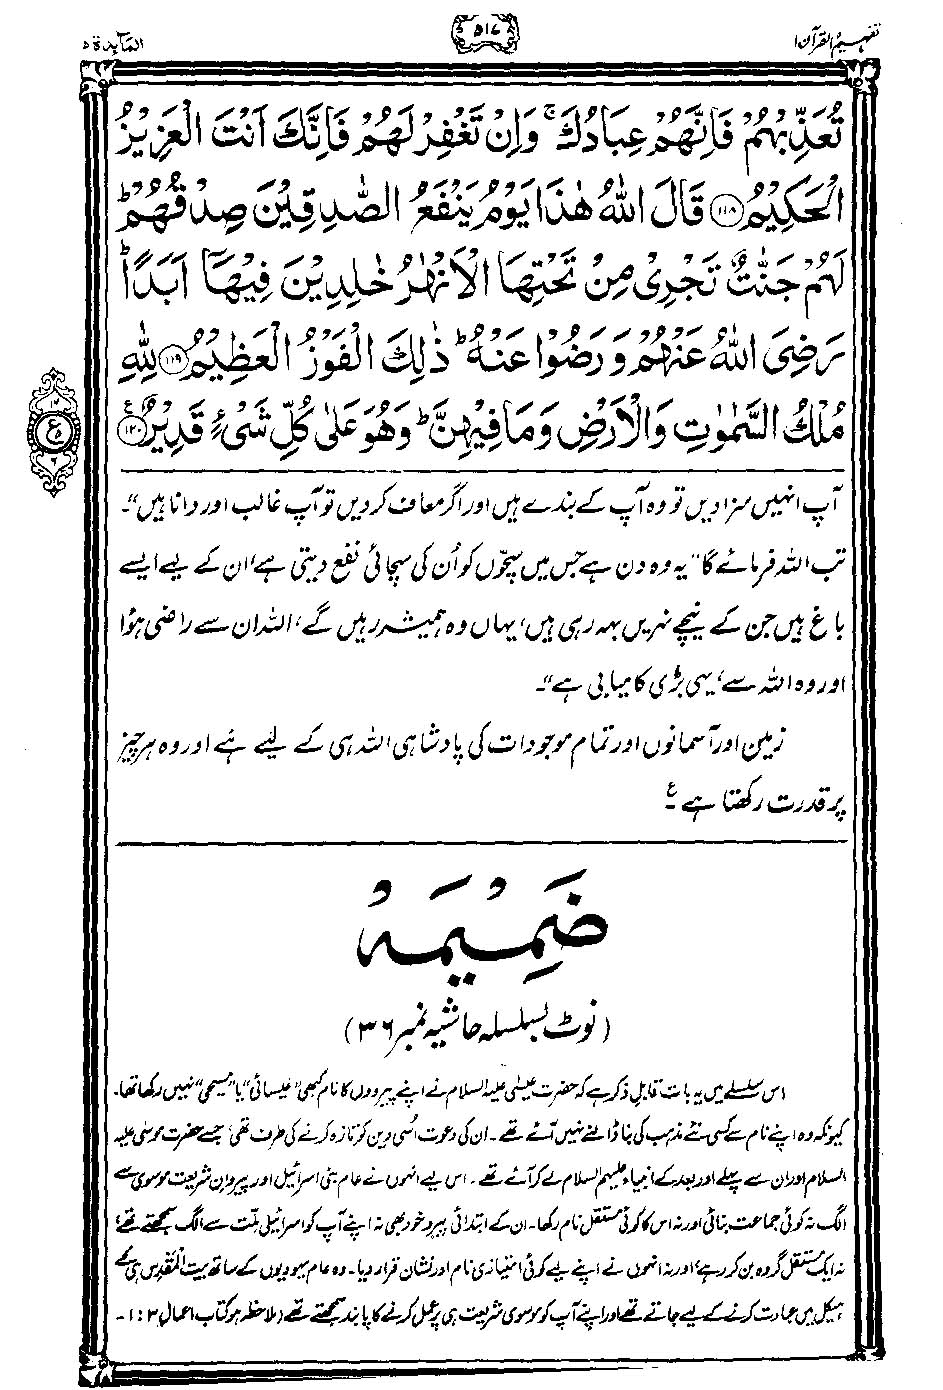 تفہیم القرآن ۱
۵۱۷
المآئدة ۵
تُعَذِّبْهُمْ فَاِنَّهُمْ عِبَادُكَ ۚ وَاِنْ تَغْفِرْ لَهُمْ فَاِنَّكَ اَنْتَ الْعَزِيْزُ
الْحَكِيْمُ ﴿۱۱۸﴾ قَالَ اللّٰهُ هٰذَا يَوْمُ يَنْفَعُ الصّٰدِقِيْنَ صِدْقُهُمْ ؕ
لَهُمْ جَنّٰتٌ تَجْرِىْ مِنْ تَحْتِهَا الْاَنْهٰرُ خٰلِدِيْنَ فِيْهَاۤ اَبَدًا ؕ
رَضِىَ اللّٰهُ عَنْهُمْ وَرَضُوْا عَنْهُ ؕ ذٰلِكَ الْفَوْزُ الْعَظِيْمُ ﴿۱۱۹﴾ لِلّٰهِ
مُلْكُ السَّمٰوٰتِ وَالْاَرْضِ وَمَا فِيْهِنَّ ؕ وَهُوَ عَلٰى كُلِّ شَىْءٍ قَدِيْرٌ ﴿۱۲۰﴾ ع
۱۶
ع
۵
۶
آپ انہیں سزا دیں تو وہ آپ کے بندے ہیں اور اگر معاف کر دیں تو آپ غالب اور دانا ہیں"۔
تب اللہ فرمائے گا "یہ وہ دن ہے جس میں سچّوں کو اُن کی سچائی نفع دیتی ہے، ان کے لیے ایسے
باغ ہیں جن کے نیچے نہریں بہہ رہی ہیں، یہاں وہ ہمیشہ رہیں گے، اللہ ان سے راضی ہوُا
اور وہ اللہ سے، یہی بڑی کامیابی ہے"۔
زمین اور آسمانوں اور تمام موجودات کی پادشاہی اللہ ہی کے لیے ہے اور وہ ہر چیز
پر قدرت رکھتا ہے۔ ع
ضَمِیْمَہ
(نوٹ بسلسلہ حاشیہ نمبر ۳۶)
اس سلسلے میں یہ بات قابلِ ذکر ہے کہ حضرت عیسٰی علیہ السلام نے اپنے پیرووں کا نام کبھی "عیسائی" یا "مسیحی" نہیں رکھا تھا۔
کیونکہ وہ اپنے نام سے کسی نئے مذہب کی بنا ڈالنے نہیں آئے تھے۔ ان کی دعوت اُسی دین کو تازہ کرنے کی طرف تھی جسے حضرت موسیٰ علیہ
السلام اور ان سے پہلے اور بعد کے انبیاء علیہم السلام لے کر آئے تھے۔ اس لیے انہوں نے عام بنی اسرائیل اور پیروانِ شریعت موسوی سے
الگ نہ کوئی جماعت بنائی اور نہ اس کا کوئی مستقل نام رکھا۔ ان کے ابتدائی پیرو خود بھی نہ اپنے آپ کو اسرائیلی ملّت سے الگ سمجھتے تھے،
نہ ایک مستقل گروہ بن کر رہے، اور نہ انہوں نے اپنے لیے کوئی امتیازی نام اور نشان قرار دیا۔ وہ عام یہودیوں کے ساتھ بیت المقدس ہی کے
ہیکل میں عبادت کرنے کے لیے جاتے تھے اور اپنے آپ کو موسوی شریعت ہی پر عمل کرنے کا پابند سمجھتے تھے (ملاحظہ ہو کتاب اعمال ۳:۱۔